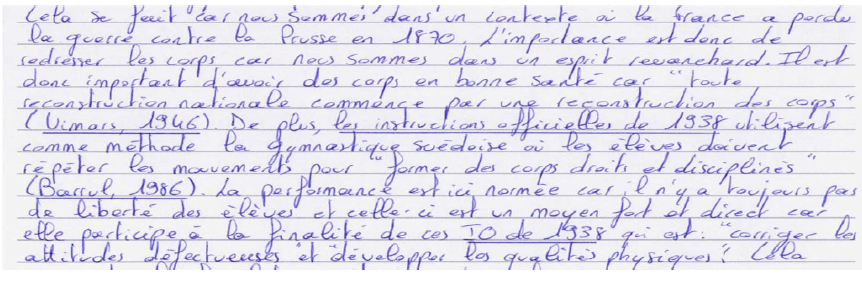 Cela se fait car nous sommes dans un contexte où la France a perdu
la guerre contre la Prusse en 1870. L'importance est donc de
redresser les corps car nous sommes dans un esprit revanchard. Il est
donc important d'avoir des corps en bonne santé car "toute
reconstruction nationale commence par une reconstruction des corps"
(Vimars, 1946). De plus, les instructions officielles de 1938 utilisent
comme méthode la gymnastique suédoise où les élèves doivent
répéter les mouvements pour "former des corps droits et disciplinés"
(Barrul, 1986). La performance est ici normée car il n'y a toujours pas
de liberté des élèves et celle-ci est un moyen fort et direct car
elle participe à la finalité de ces IO de 1938 qui est: "corriger les
attitudes défectueuses et développer les qualités physiques". Cela